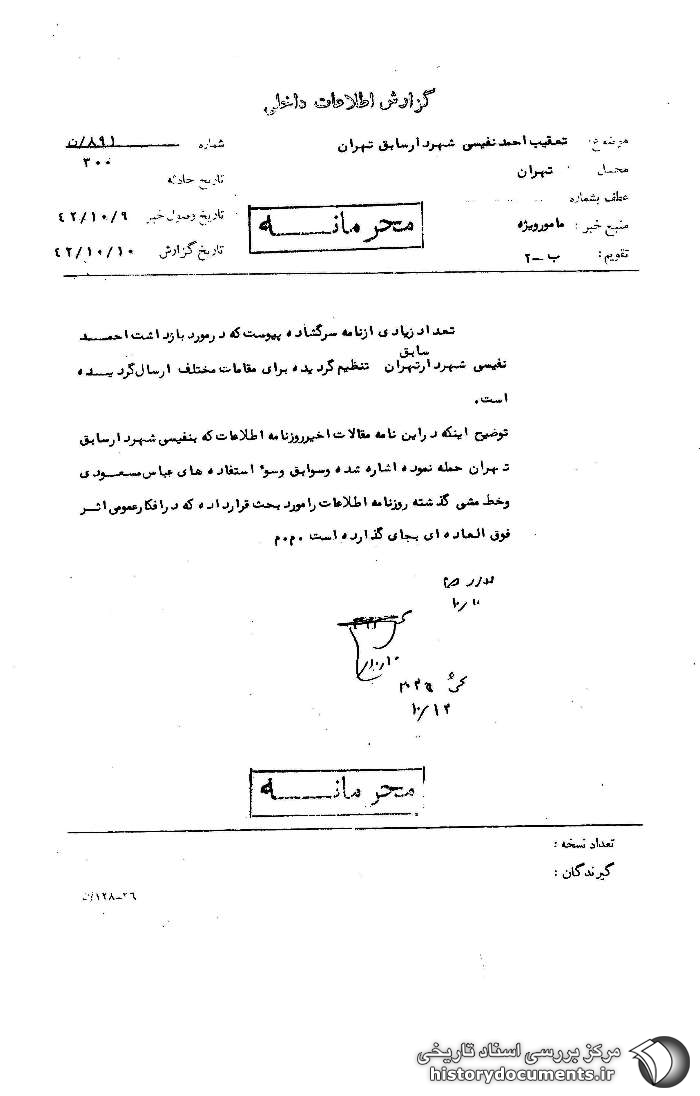 گزارش اطلاعات داخلی
موضوع: تعقیب احمد نفیسی شهردار سابق تهران
شماره ۸۹۱/ن
۳۰۰
محل تهران
تاریخ حادثه
عطف بشماره
محرمانه
تاریخ وصول خبر ۴۲/۱۰/۹
منبع خبر: مامور ویژه
تاریخ گزارش ۴۲/۱۰/۱۰
تقویم: ب-۲
تعداد زیادی از نامه سرگشاده پیوست که در مورد بازداشت احمد
سابق
نفیسی شهردار تهران تنظیم گردیده برای مقامات مختلف ارسال گردیده
است.
توضیح اینکه در این نامه مقالات اخیر روزنامه اطلاعات که بنفیسی شهردار سابق
تهران حمله نموده اشاره شده وسوابق وسوء استفاده های عباس مسعودی
وخط مشی گذشته روزنامه اطلاعات را مورد بحث قرار داده که در افکار عمومی اثر
فوق العاده ای بجای گذارده است .م.م
۱۰/۱۰
۱۰/۱۰
۱۰/۱۲
محرمانه
تعداد نسخه :
گیرندگان :
۱۲۸-۲۶
مرکز بررسی اسناد تاریخی
historydocuments.ir